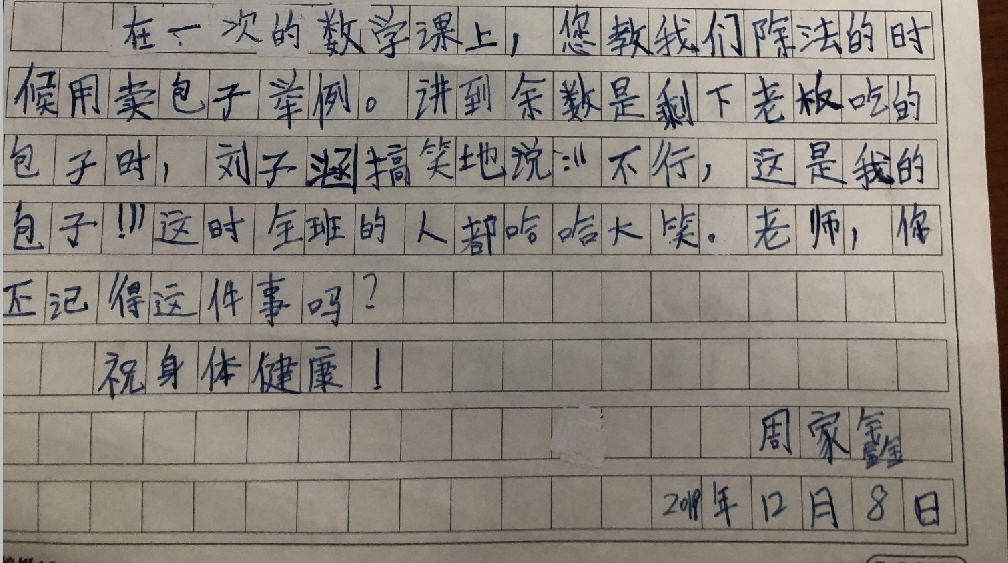 在一次的数学课上，您教我们除法的时
候用卖包子举例。讲到余数是剩下老板吃的
包子时，刘子涵搞笑地说："不行，这是我的
包子！"这时全班的人都哈哈大笑。老师，你
还记得这件事吗？
祝身体健康！
周家鑫
2019年12月8日